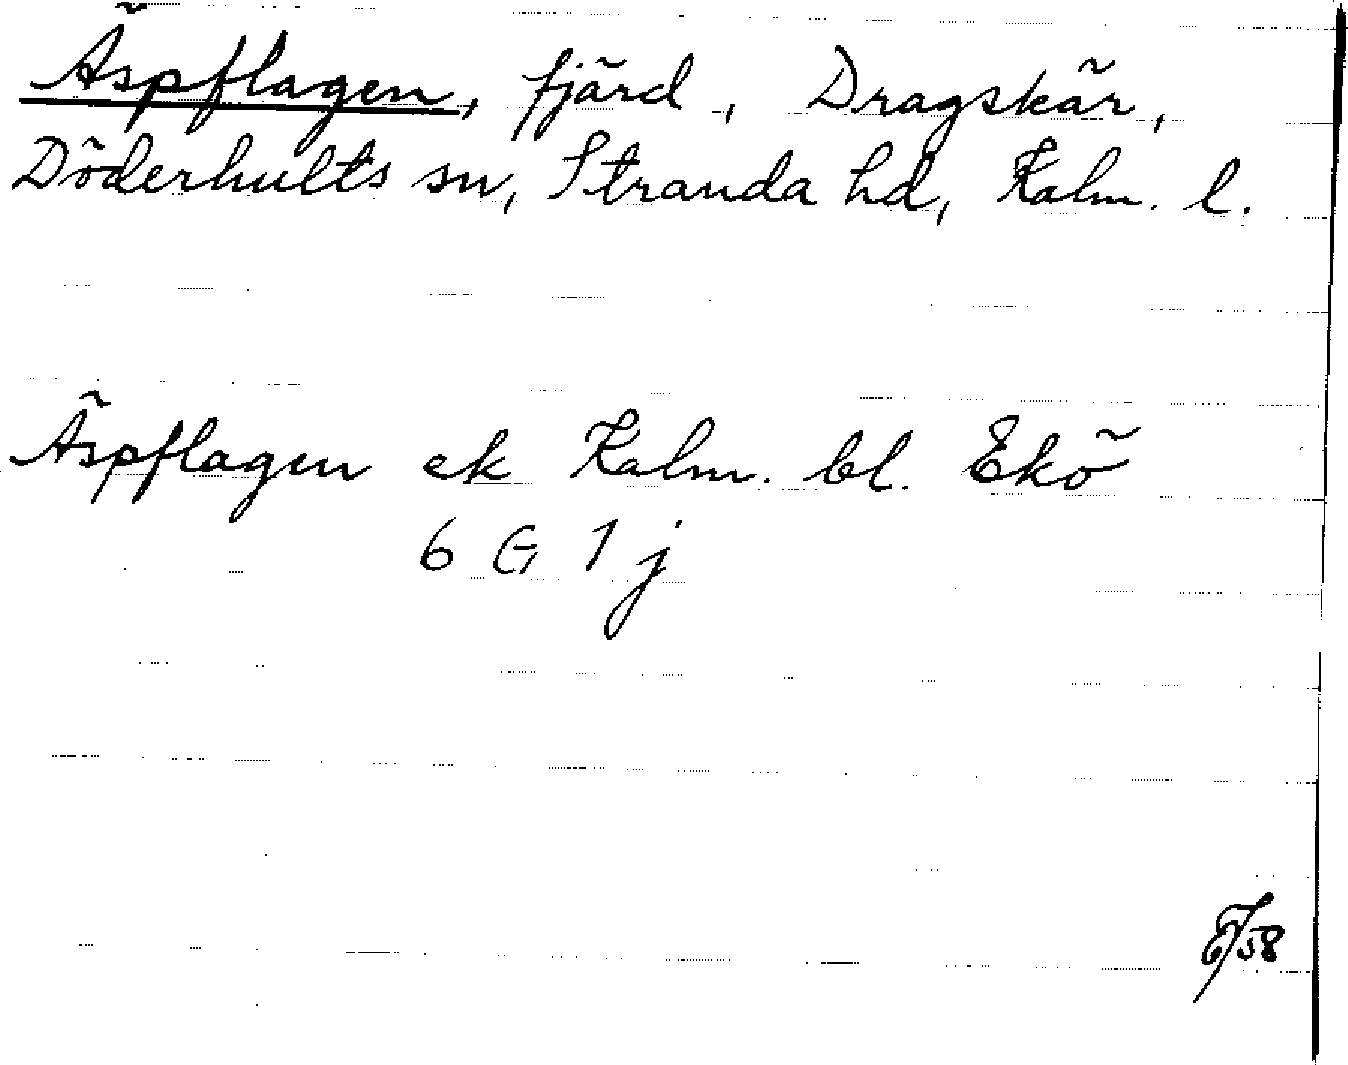 Äspflagen, fjärd, Dragskär,
Döderhults sn, Stranda hd, Kalm. l.
Äspflagen ek Kalm. bl. Ekö
6 G 1 j
/58